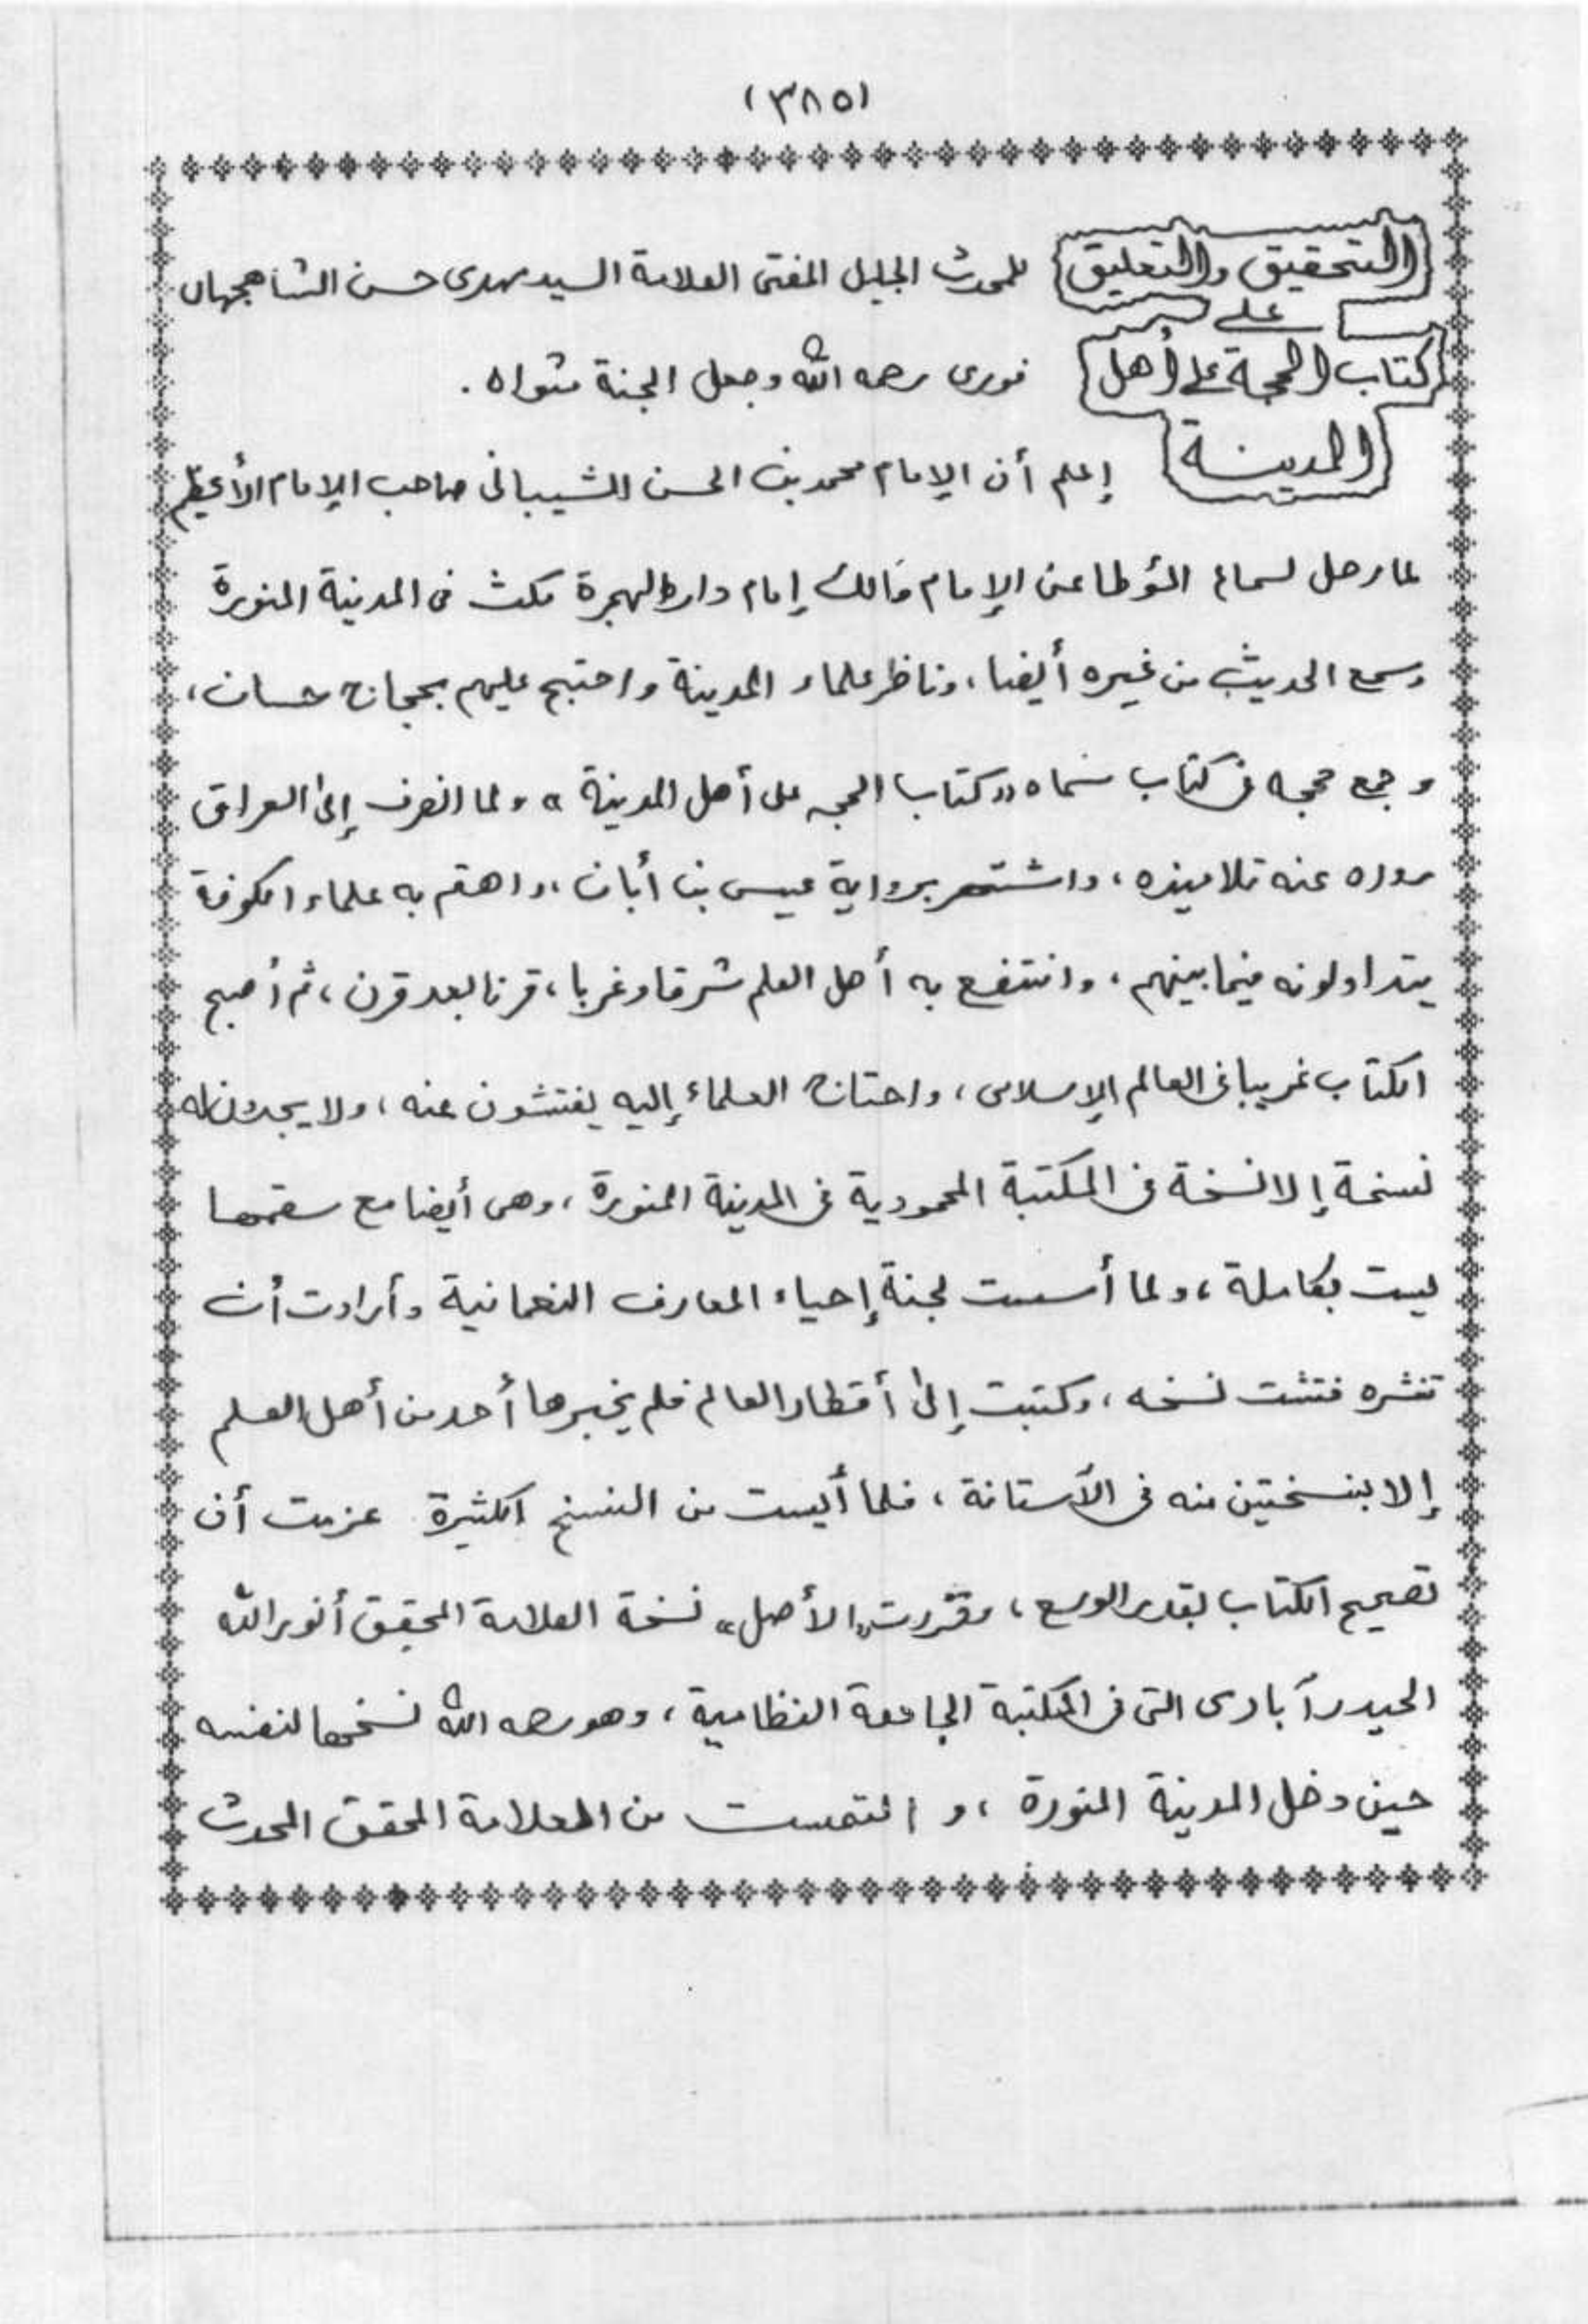 (٣٨٥)
التحقيق والتعليق للمحدث الجليل المفتى العلامة السيد مهدى حسن الشاهجهان
على
كتاب الحجة على أهل فورى رحمه الله وجعل الجنة مثواه .
المدينة إعلم أن الإمام محمد بن الحسن الشيبانى صاحب الإمام الأعظم
لما رحل لسماع المؤطا عن الإمام مالك إمام دار الهجرة مكث فى المدينة المنورة
وسمع الحديث من غيره أيضا، وناظر علماء المدينة واحتج عليهم بحجاج حسان،
وجمع حججه فى كتاب سماه «كتاب الحجه على أهل المدينة» ولما انصرف إلى العراق
رواه عنه تلاميذه، واشتهر برواية عيسى بن أبان، واهتم به علماء الكوفة
يتداولونه فيما بينهم، وانتفع به أهل العلم شرقا وغربا، قرنا بعد قرن، ثم أصبح
الكتاب غريبا فى العالم الإسلامى، واحتاج العلماء إليه يفتشون عنه، ولا يجدون له
نسخة إلا نسخة فى المكتبة المحمودية فى المدينة المنورة، وهى أيضا مع سقمها
ليست بكاملة، ولما أسست لجنة إحياء المعارف النعمانية وأرادت أن
تنشره فتشت نسخه، وكتبت إلى أقطار العالم فلم يخبرها أحد من أهل العلم
إلا بنسختين منه فى الآستانة، فلما أيست من النسخ الكثيرة عزمت أن
تصحيح الكتاب بقدر الوسع، وقررت «الأصل» نسخة العلامة المحقق أنور الله
الحيدرآبادى التى فى المكتبة الجامعة النظامية، وهو رحمه الله نسخها لنفسه
حين دخل المدينة المنورة، و التمست من العلامة المحقق المحدث